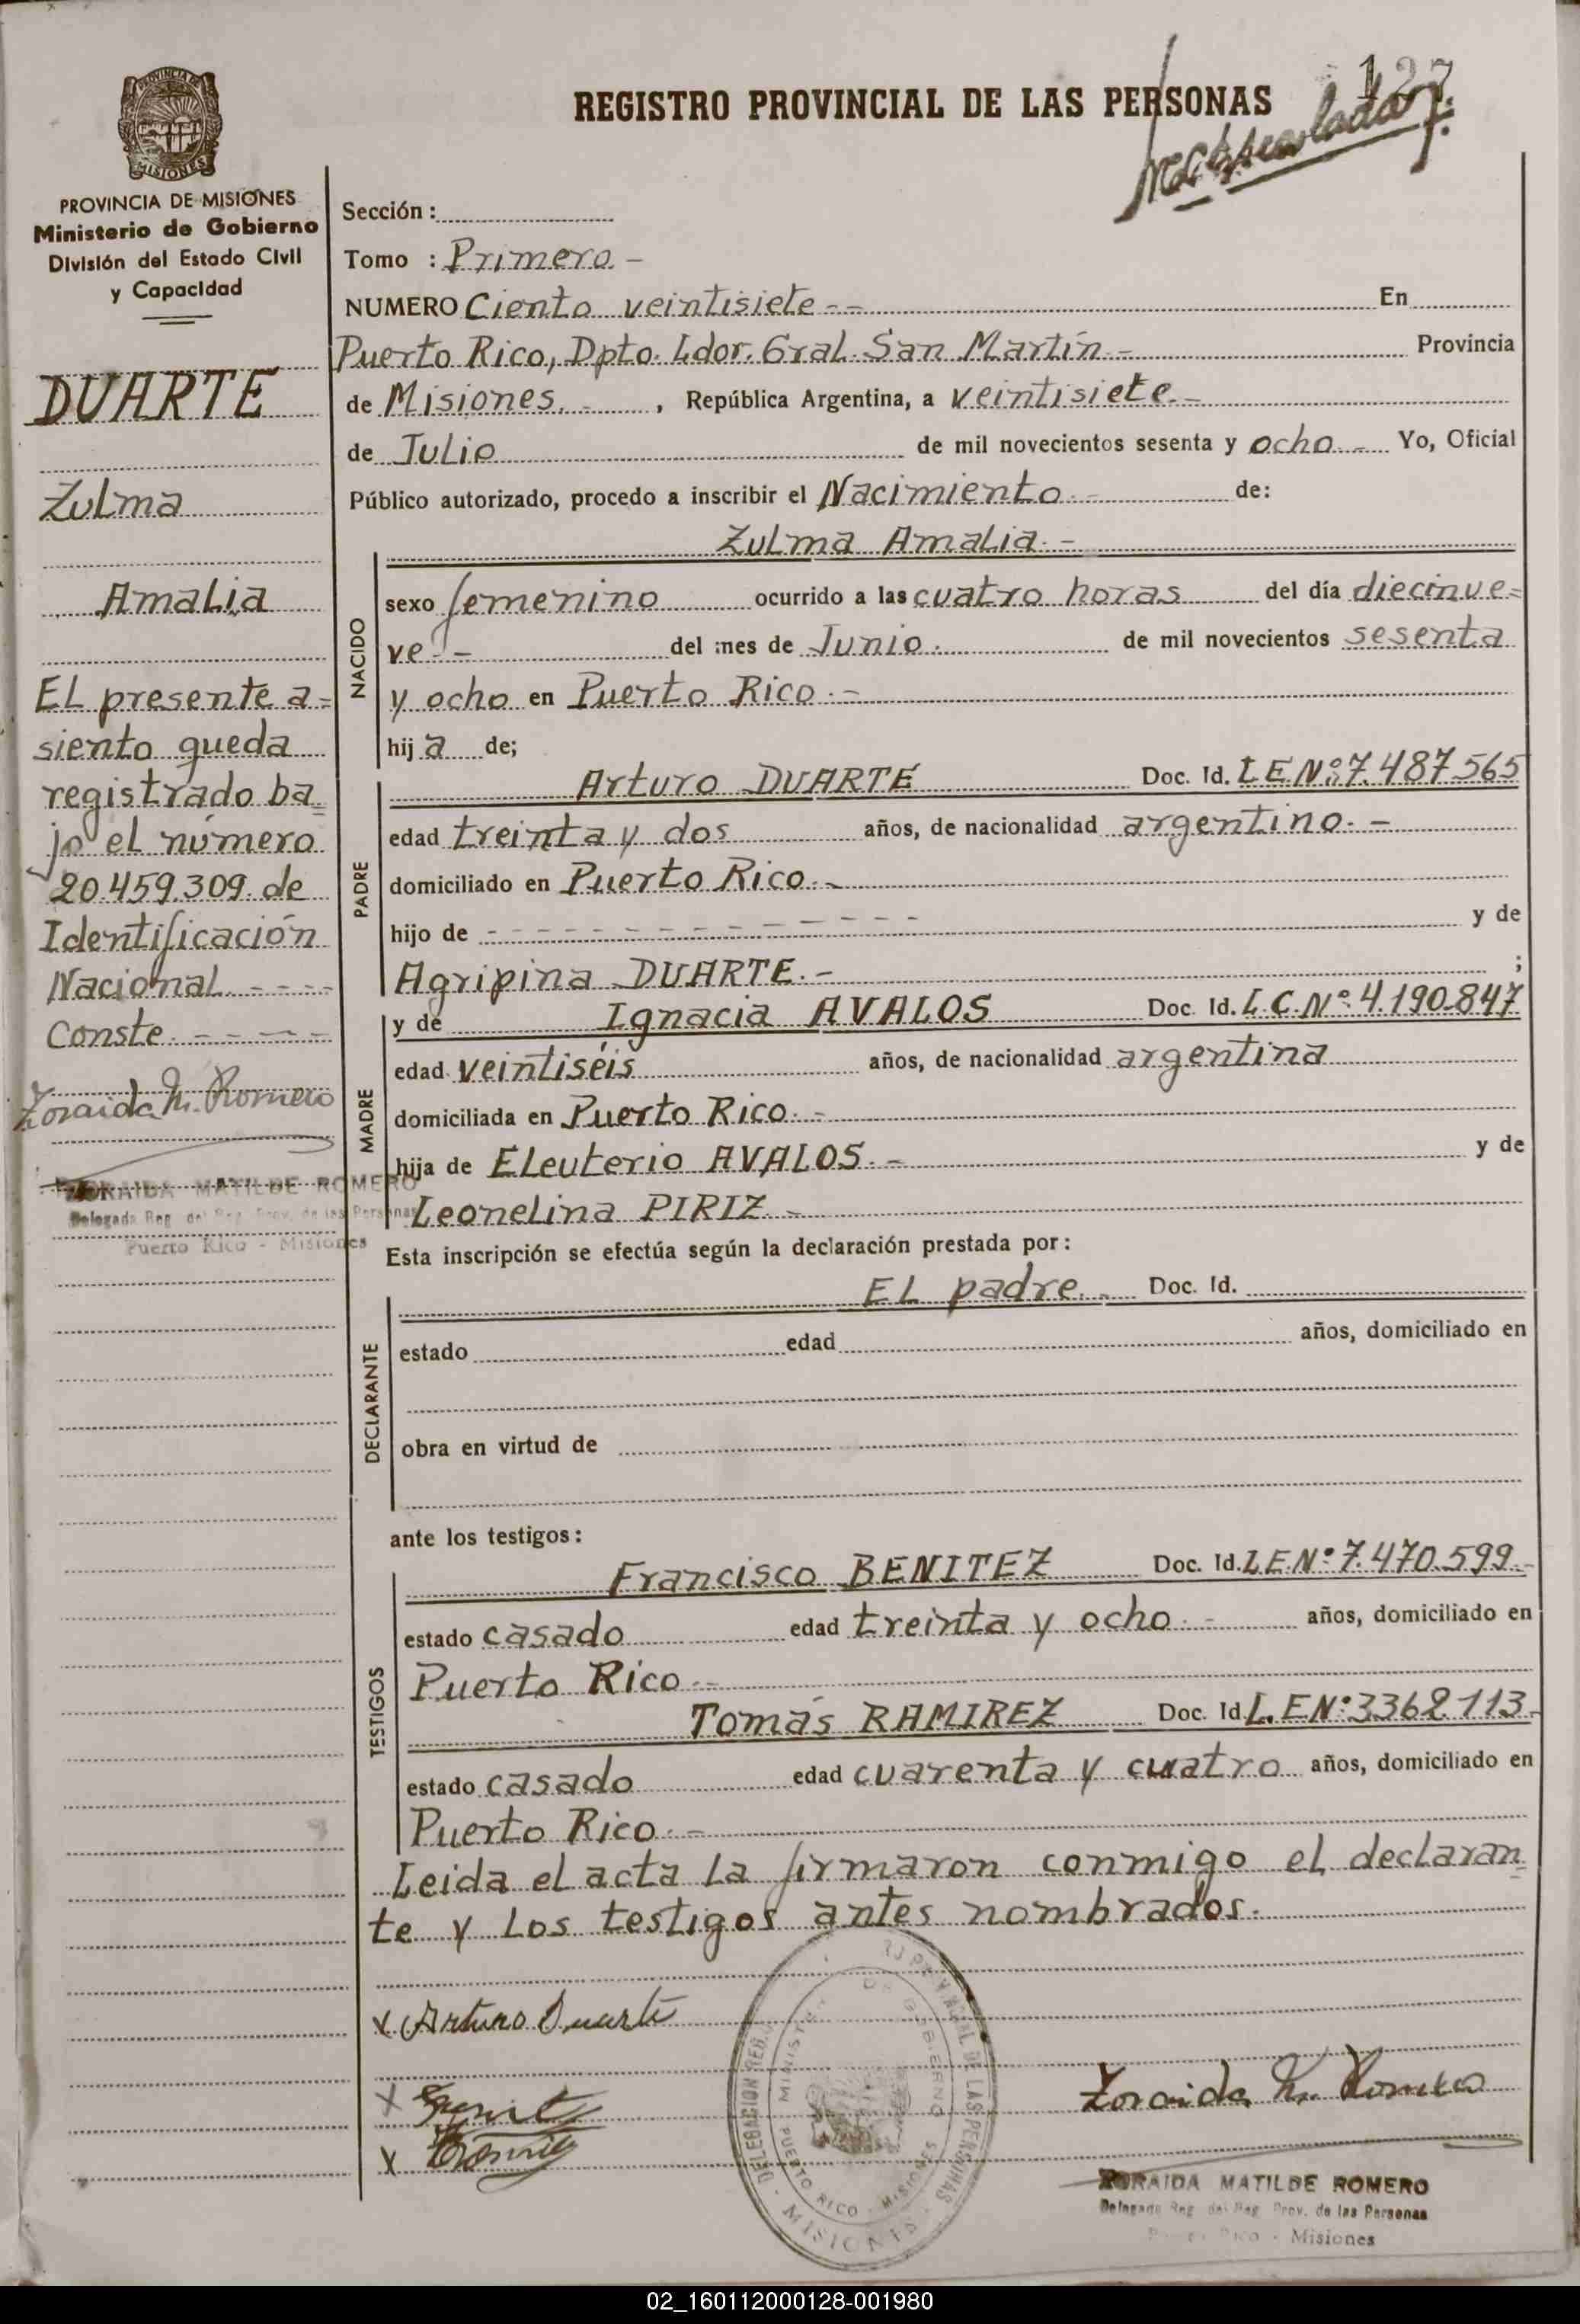 127
REGISTRO PROVINCIAL DE LAS PERSONAS
PROVINCIA DE
MISIONES
PROVINCIA DE MISIONES
Ministerio de Gobierno
División del Estado Civil
y Capacidad
DUARTE
Zulma
Amalia
El presente a=
siento queda
registrado ba=
jo el número
20.459.309. de
Identificación
Nacional. - - - -
Conste. - - - - -
Zoraida M. Romero
ZORAIDA MATILDE ROMERO
Delegada Reg. del Reg. Prov. de las Personas
Puerto Rico - Misiones
Sección :
Tomo : Primero. -
NUMERO Ciento veintisiete - - En
Puerto Rico, Dpto. Ldor. Gral. San Martín. - Provincia
de Misiones. - , República Argentina, a veintisiete. -
de Julio de mil novecientos sesenta y ocho. - Yo, Oficial
Público autorizado, procedo a inscribir el Nacimiento. - de:
Zulma Amalia. -
NACIDO
sexo femenino ocurrido a las cuatro horas del día diecinue=
ve. - del mes de Junio. de mil novecientos sesenta
y ocho en Puerto Rico. -
hij a de;
PADRE
Arturo DUARTE Doc. Id. L.E.Nº 7.487.565
edad treinta y dos años, de nacionalidad argentino. -
domiciliado en Puerto Rico. -
hijo de - - - - - - - - - - - - - y de
Agripina DUARTE. - ;
MADRE
y de Ignacia AVALOS Doc. Id. L.C.Nº 4.190.847
edad veintiséis años, de nacionalidad argentina
domiciliada en Puerto Rico. -
hija de Eleuterio AVALOS. - y de
Leonelina PIRIZ. -
Esta inscripción se efectúa según la declaración prestada por:
DECLARANTE
El padre. - Doc. Id.
estado edad años, domiciliado en
obra en virtud de
ante los testigos:
TESTIGOS
Francisco BENITEZ Doc. Id. L.E.Nº 7.470.599. -
estado casado edad treinta y ocho. - años, domiciliado en
Puerto Rico. -
Tomás RAMIREZ Doc. Id L.E.Nº 3362.113. -
estado casado edad cuarenta y cuatro años, domiciliado en
Puerto Rico. -
Leida el acta la firmaron conmigo el declaran=
te y los testigos antes nombrados.
x Arturo Duarte
x
x
DELEGACION REG. PROVINCIAL DE LAS PERSONAS
MINISTERIO DE GOBIERNO
PUERTO RICO - MISIONES
- MISIONES -
Zoraida M. Romero
ZORAIDA MATILDE ROMERO
Delegada Reg. del Reg. Prov. de las Personas
Puerto Rico - Misiones
02_160112000128-001980